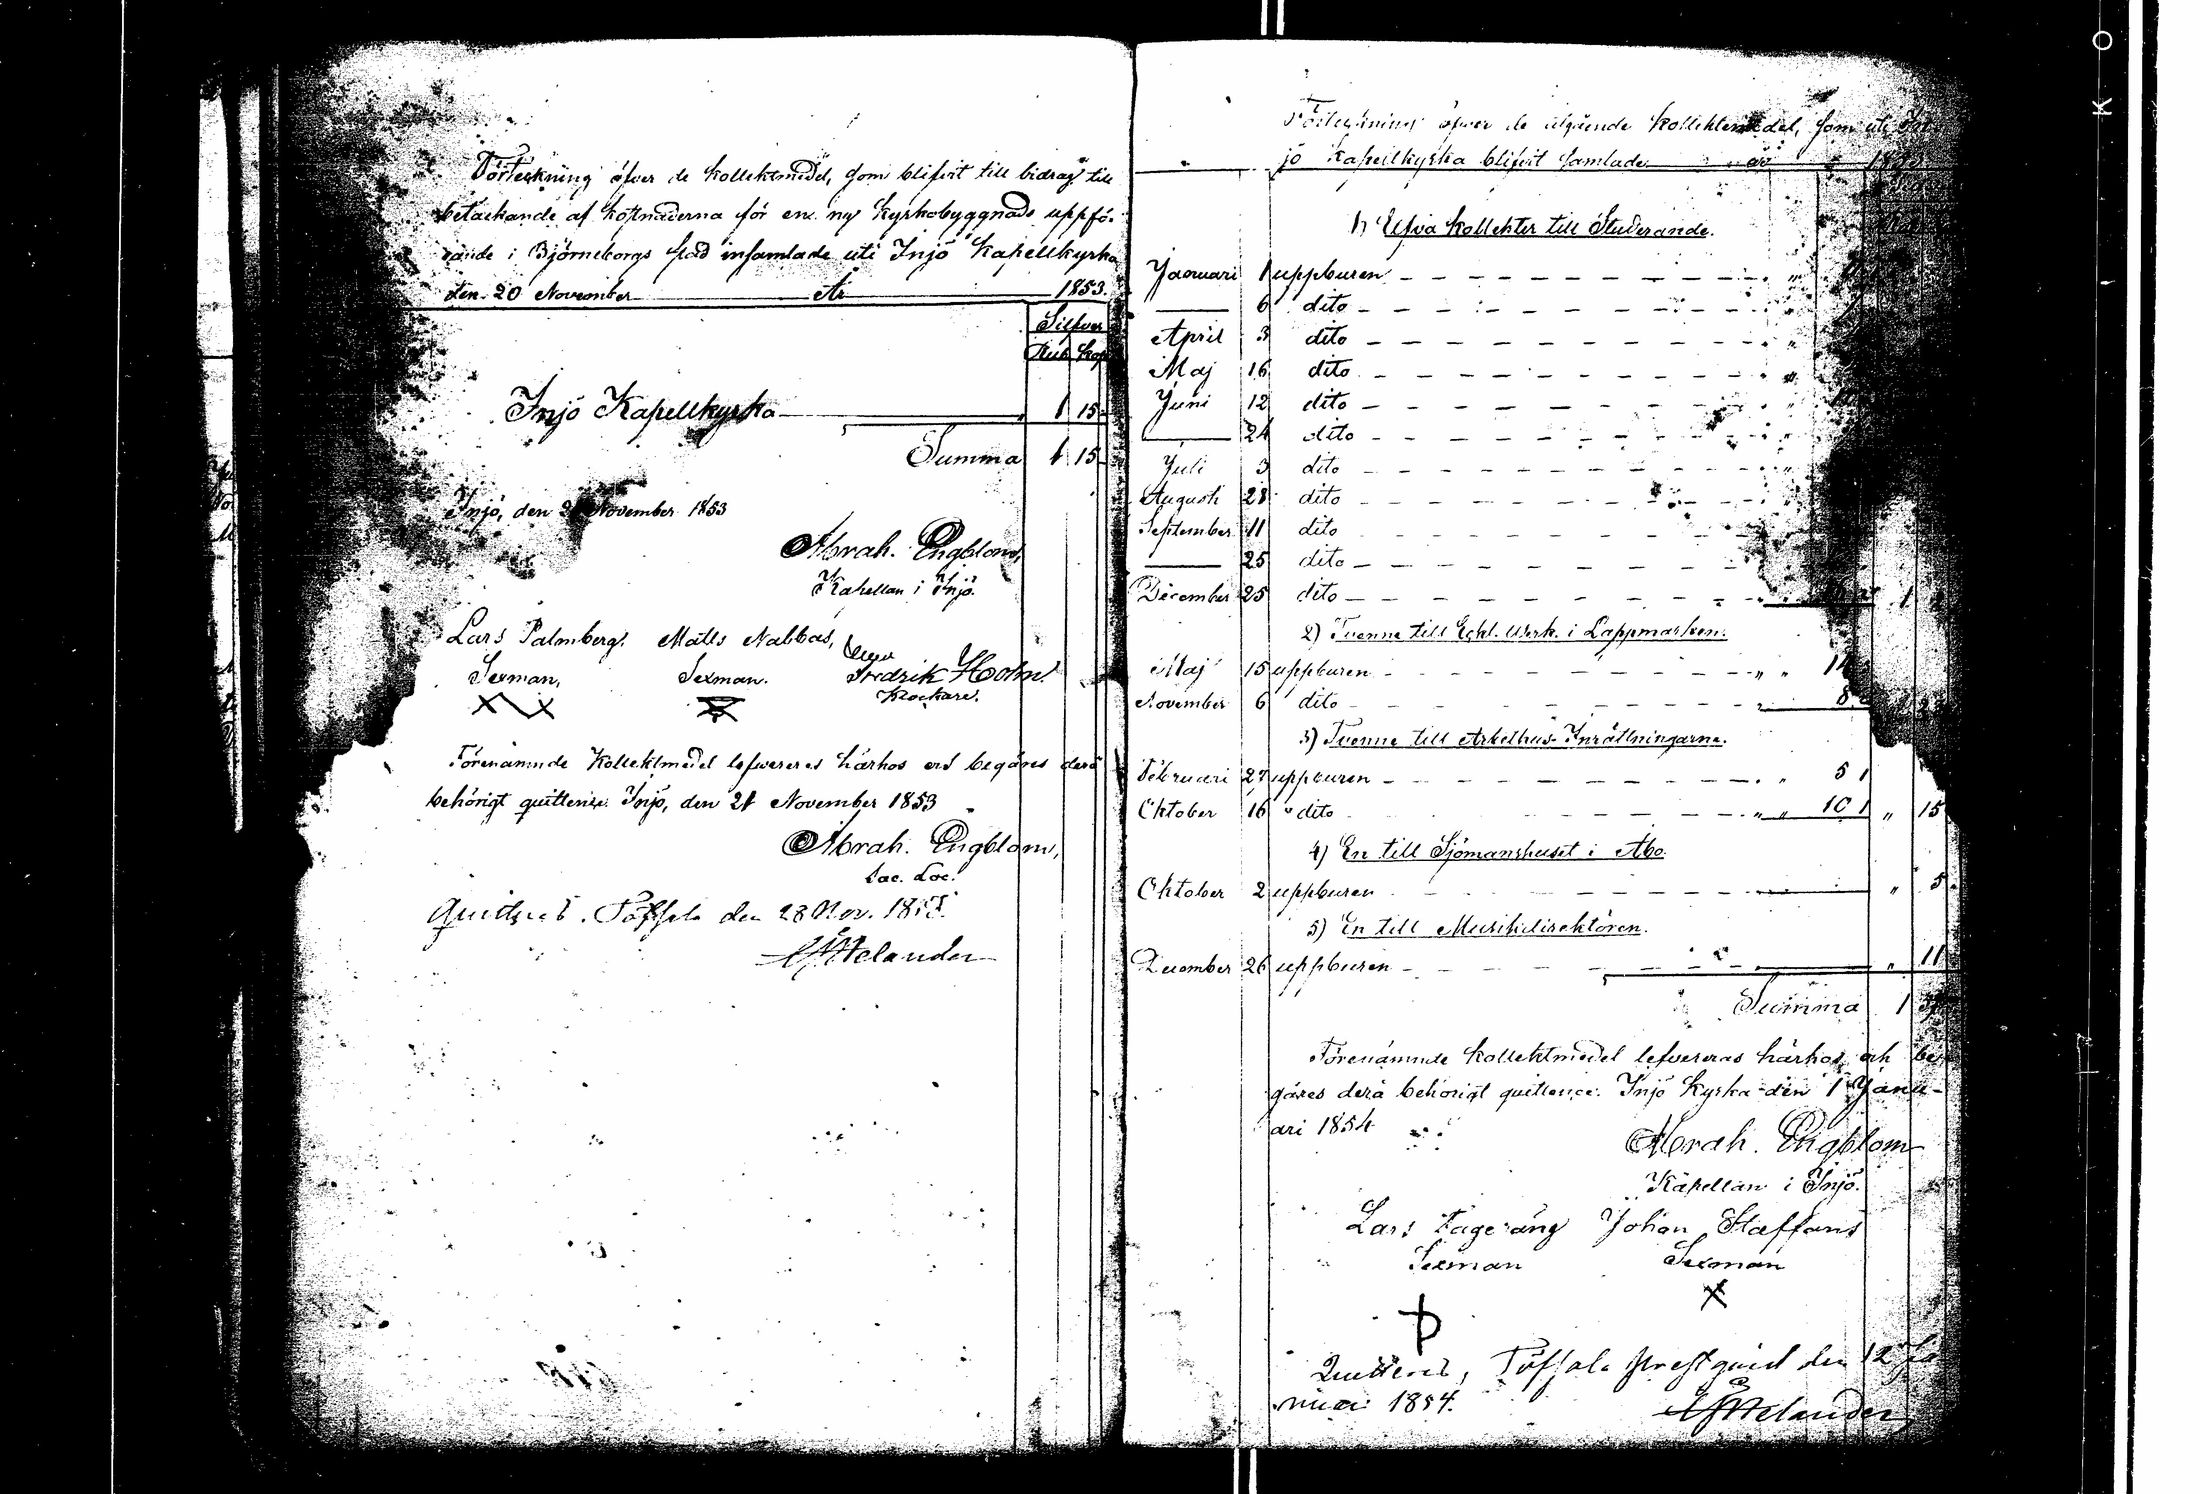 Förteckning öfver de kollektmedel, som blifvit till bidrag till
betäckande af kostnaderna för en ny Kyrkobyggnads uppfö-
rande i Björneborgs stad insamlade uti Injö Kapellkyrka
den 20 November År 1853.
Silfver
Rub. Kop.
Injö Kapellkyrka 1 15
Summa 1 15
Injö, den November 1853
Abrah. Engblom,
Kapellan i Injö.
Lars Palmberg, Matts Nabbas,
Fredrik Holm
Sexman, Sexman. Klockare.
Förenämnde Kollektmedel lefvereras härhos och begäres derå
behörigt quittence. Injö, den 21 November 1853
Abrah. Engblom,
Sac. Loc.
Quitteras. Töfsala den 28 Nov. 1853.
Welander
Förteckning öfver de utgående Kollektmedel, som uti In-
jö Kapellkyrka blifvit samlade år 1853
1) Elfva Kollekter till Studerande.
Januari 1 uppburen
6 dito
April 3 dito
Maj 16 dito
Juni 12 dito
24 dito
Juli 3 dito
Augusti 28 dito
September 11 dito
25 dito
December 25 dito
2) Tvenne till Eckl. Werk. i Lappmarken.
Maj 15 uppburen
November 6 dito
3) Tvenne till Arbetshus-Inrättningarne.
Februari 27 uppburen 5
Oktober 16 dito 10 " 15
4) En till Sjömanshuset i Åbo.
Oktober 2 uppburen " 5
5) En till Musikdirektören.
December 26 uppburen " 11
Summa 1
Förenämnde Kollektmedel lefvereras härhos och be-
gäres derå behörigt quittence. Injö Kyrka den 1 Janu-
ari 1854
Abrah. Engblom
Kapellan i Injö.
Lars Johan Staffans
Sexman Sexman
Quitteras, Töfsala prestgård den 12 Ja
nuari 1854.
Welander